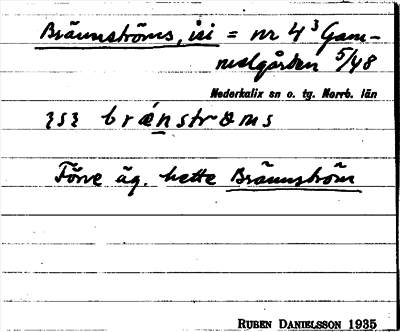 Brännströms, isi = nr 4³ Gam-
melgården 5/48
Nederkalix sn o. tg. Norrb. län
brænstrøms
Förre äg. hette Brännström
RUBEN DANIELSSON 1935